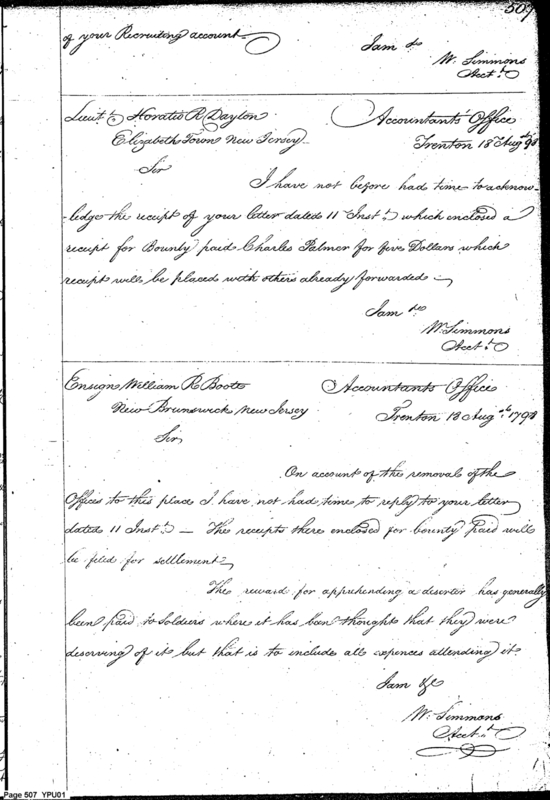 507
of your Recruiting account
I am &c
W. Simmons
Acct.
Lieut. Horatio R Dayton
Accountants Office
Elizabeth Town New Jersey
Trenton 18 Augt. 98
Sir
I have not before had time to acknow-
ledge the receipt of your letter dated 11 Inst. which enclosed a
receipt for Bounty paid Charles Palmer for five Dollars which
receipt will be placed with others already forwarded
I am &c
W Simmons
Acct.
Ensign William R Boote
Accountants Office
New Brunswick New Jersey
Trenton 18 Aug. 1798
Sir
On account of the removal of the
Offices to this place I have not had time to reply to your letter
dated 11 Inst. — The receipts there enclosed for bounty paid will
be filed for settlement
The reward for apprehending a deserter has generally
been paid to Soldiers where it has been thought that they were
deserving of it but that is to include all expences attending it
I am &c
W. Simmons
Acct.
Page 507 YPU01